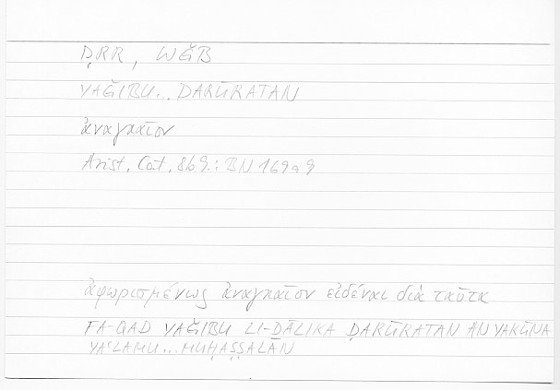 ḌRR, WĞB
YAĞIBU... ḌARŪRATAN
ἀναγκαῖον
Arist. Cat. 8b9.; BN 169a9
ἀφωρισμένως ἀναγκαῖον εἰδέναι διὰ ταῦτα
FA-QAD YAĞIBU LI-ḎĀLIKA ḌARŪRATAN AN YAKŪNA
YAʿLAMU... MUḤAṢṢALĀN